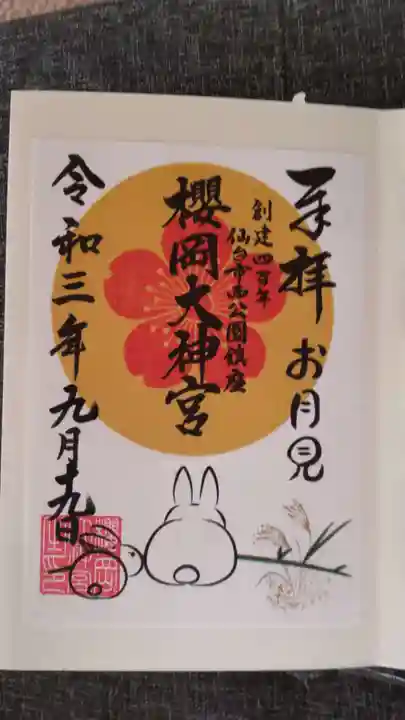 奉拝 お月見
創建四百年
仙台市西公園鎮座
櫻岡大神宮
令和三年九月十九日